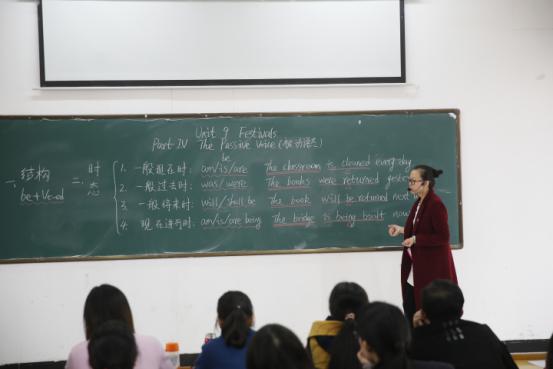 Unit 9 Festivals
Part IV The Passive Voice (被动语态)
一、结构
be+V-ed
二、时态
be
1. 一般现在时: am/is/are The classroom is cleaned everyday
2. 一般过去时: was/were The books were returned
3. 一般将来时: will/shall be The book will be returned next
4. 现在进行时: am/is/are being The bridge is being built now